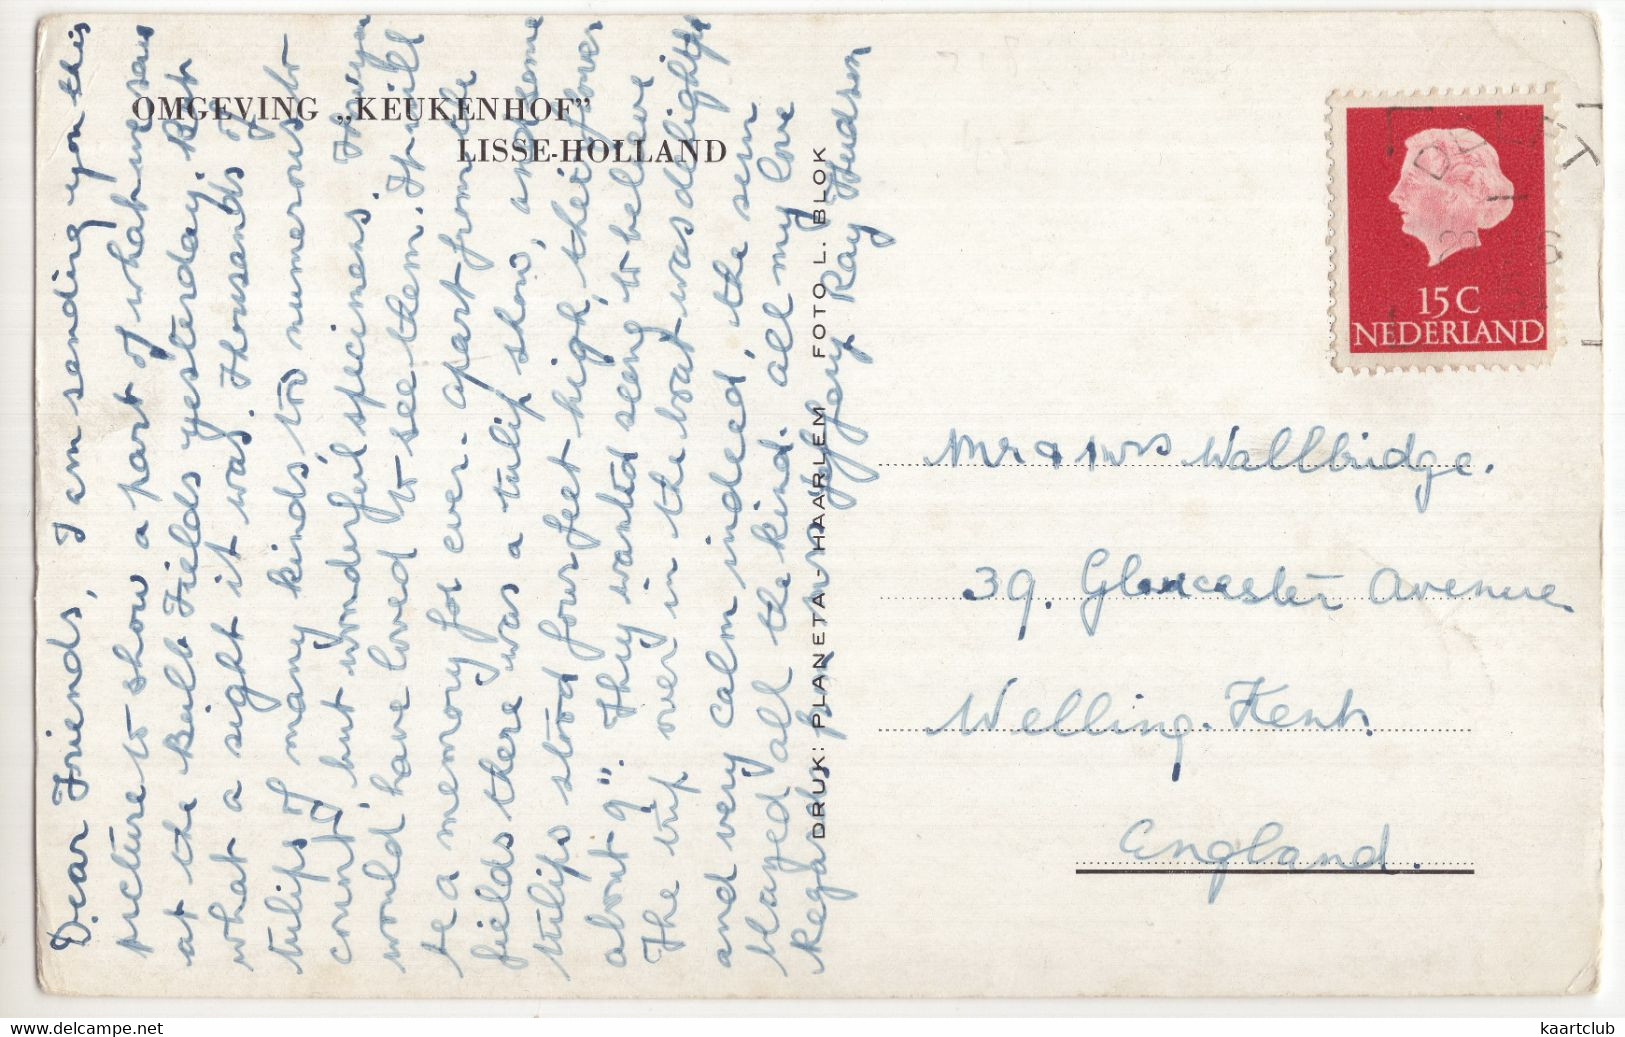 OMGEVING „KEUKENHOF”
LISSE-HOLLAND
Dear Friends, I am sending you this
picture to show a part of what we saw
at the Bulb Fields yesterday. But
what a sight it was. Thousands of
tulips of many kinds, too numerous to
count, but wonderful specimens.
would have loved to see them. It will
be a memory for ever. apart from the
fields there was a tulip show, and some
tulips stood four feet high, their flower
about 9". They wanted seeing to believe
The trip over in the boat was delightful
and very calm indeed, the sun
blazed all the kind. all my love
Regards from Ray Hudson
DRUK: PLANETA - HAARLEM FOTO L. BLOK
15 C
NEDERLAND
DELFT
Mr & Mrs Wallbridge.
39. Gloucester Avenue
Welling. Kent.
England.
www.delcampe.net
kaartclub